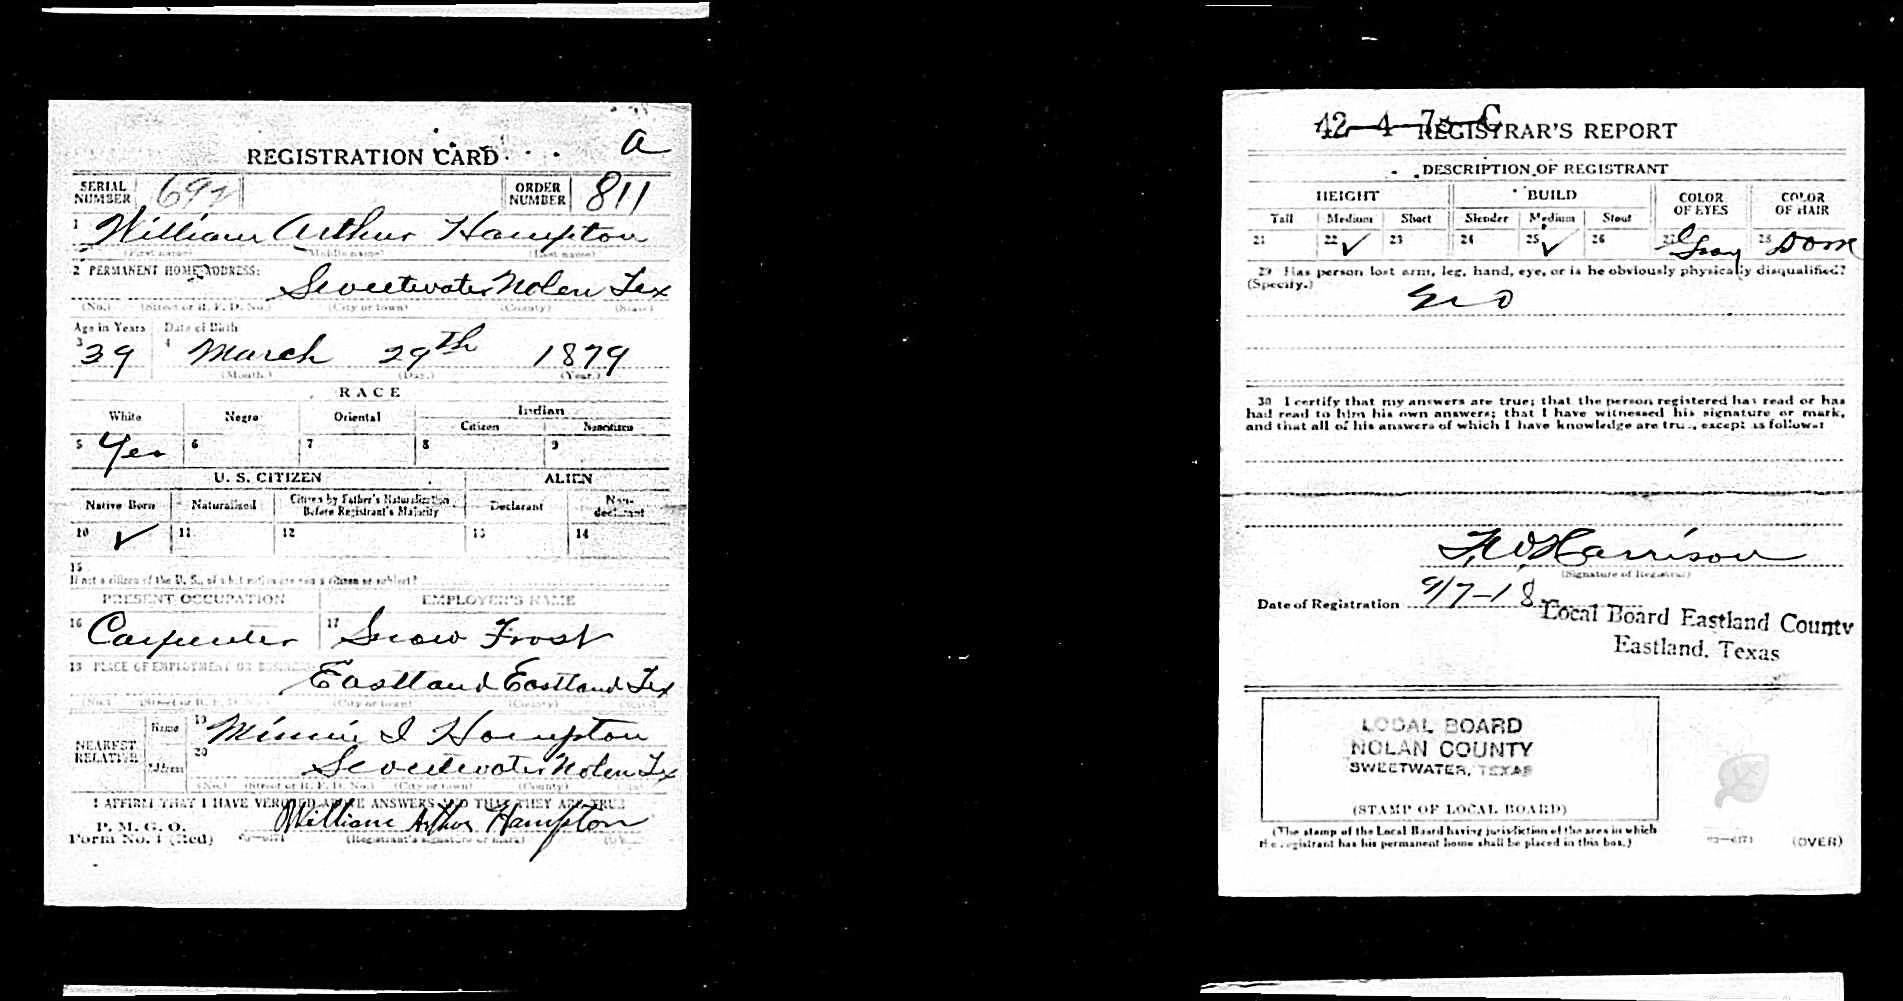 REGISTRATION CARD
a
SERIAL NUMBER
692
ORDER NUMBER
811
1 William Arthur Hampton
(First name) (Middle name) (Last name)
2 PERMANENT HOME ADDRESS:
Sweetwater Nolen Tex
(No.) (Street or R. F. D. No.) (City or town) (County) (State)
Age in Years Date of Birth
3 39 4 March 29th 1879
(Month.) (Day.) (Year.)
RACE
White Negro Oriental Indian
Citizen Noncitizen
5 Yes 6 7 8 9
U. S. CITIZEN ALIEN
Native Born Naturalized Citizen by Father's Naturalization Before Registrant's Majority Declarant Non-declarant
10 ✓ 11 12 13 14
15
If not a citizen of the U. S., of what nation are you a citizen or subject?
PRESENT OCCUPATION EMPLOYER'S NAME
16 Carpenter 17 Snow Frost
18 PLACE OF EMPLOYMENT OR BUSINESS:
Eastland Eastland Tex
(No.) (Street or R. F. D. No.) (City or town) (County) (State)
NEAREST RELATIVE
Name 19 Minnie I Hampton
Address 20 Sweetwater Nolen Tx
(No.) (Street or R. F. D. No.) (City or town) (County)
I AFFIRM THAT I HAVE VERIFIED ABOVE ANSWERS AND THAT THEY ARE TRUE
P. M. G. O.
Form No. 1 (Red)
William Arthur Hampton
(Registrant's signature or mark)
42-4-75-C
REGISTRAR'S REPORT
DESCRIPTION OF REGISTRANT
HEIGHT BUILD COLOR OF EYES COLOR OF HAIR
Tall Medium Short Slender Medium Stout
21 22 ✓ 23 24 25 ✓ 26 27 Gray 28
29 Has person lost arm, leg, hand, eye, or is he obviously physically disqualified?
(Specify.)
no
30 I certify that my answers are true; that the person registered has read or has
had read to him his own answers; that I have witnessed his signature or mark,
and that all of his answers of which I have knowledge are true, except as follows:
Harrison
(Signature of Registrar)
Date of Registration 9/7-18
Local Board Eastland County
Eastland, Texas
LOCAL BOARD
NOLAN COUNTY
SWEETWATER, TEXAS
(STAMP OF LOCAL BOARD)
(The stamp of the Local Board having jurisdiction of the area in which
the registrant has his permanent home shall be placed in this box.)
(OVER)